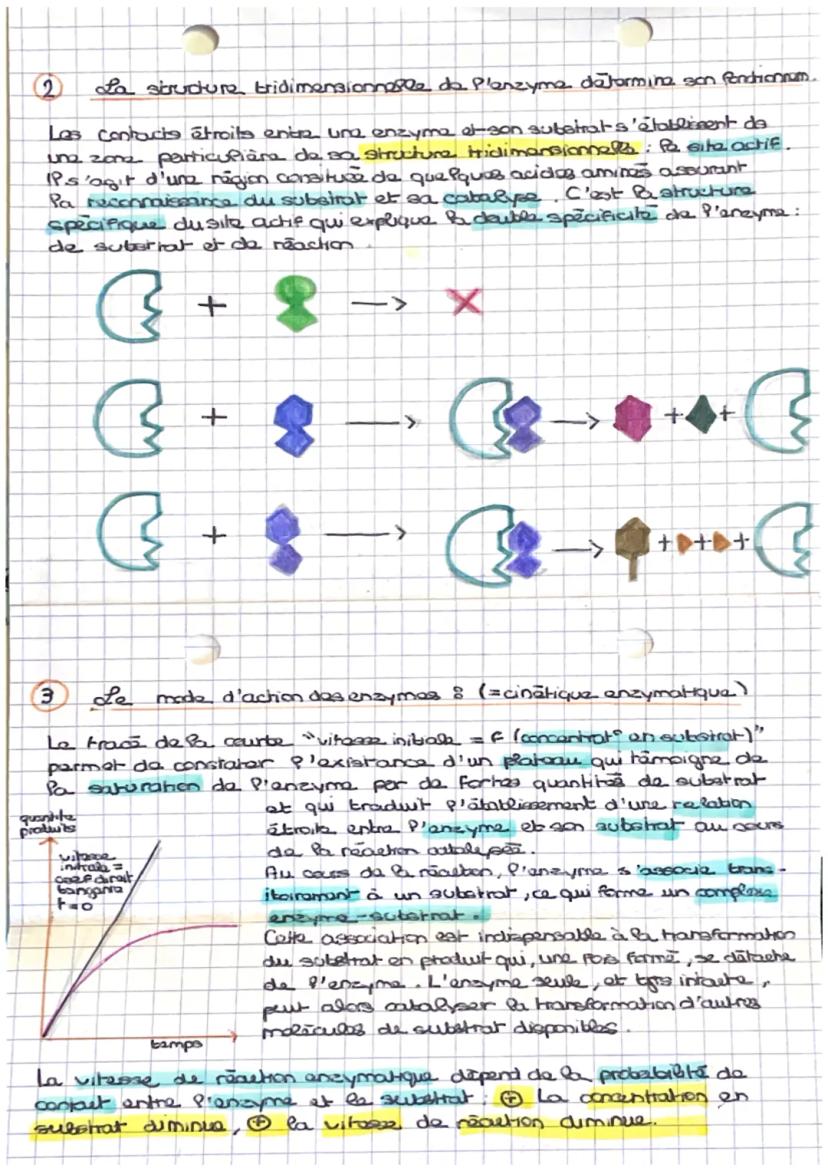 2 La structure tridimensionnelle de l'enzyme détermine son fonctionnem.
Les contacts étroits entre une enzyme et son substrat s'établissent de
une zone particulière de sa structure tridimensionnelle : le site actif.
Il s'agit d'une région constituée de quelques acides aminés assurant
la reconnaissance du substrat et sa catalyse. C'est la structure
spécifique du site actif qui explique la double spécificité de l'enzyme :
de substrat et de réaction.
+ —> X
+ —> —> + +
+ —> —> + + +
3 Le mode d'action des enzymes : (=cinétique enzymatique)
Le tracé de la courbe "vitesse initiale = f (concentrat° en substrat)"
permet de constater l'existance d'un plateau qui témoigne de
la saturation de l'enzyme par de fortes quantités de substrat
et qui traduit l'établissement d'une relation
étroite entre l'enzyme et son substrat au cours
de la réaction catalysée.
Au cours de la réaction, l'enzyme s'associe trans-
itoirement à un substrat, ce qui forme un complexe
enzyme-substrat.
Cette association est indispensable à la transformation
du substrat en produit qui, une fois formé, se détache
de l'enzyme. L'enzyme seule, et tjrs intacte,
peut alors catalyser la transformation d'autres
molécules de substrat disponibles.
quantité
produits
vitesse
initiale =
coef direct
tangante
t=0
temps
La vitesse de réaction enzymatique dépend de la probabilité de
contact entre l'enzyme et le substrat : + La concentration en
substrat diminue, + la vitesse de réaction diminue.